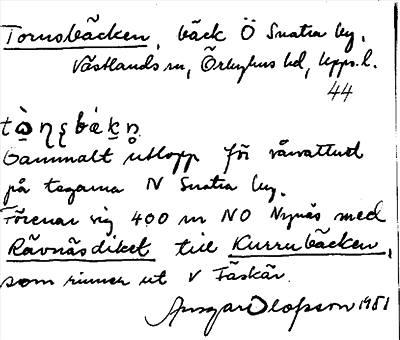 Tornsbäcken, bäck Ö Snatra by,
Västlands sn, Örbyhus hd, Upps. l.
44
Gammalt utlopp för vårvattnet
på tegarna N Snatra by.
Förenar sig 400 m NO Nynäs med
Rävnäsdiket till Kurrubäcken,
som rinner ut V Fäskär.
Ansgar Olofsson 1951